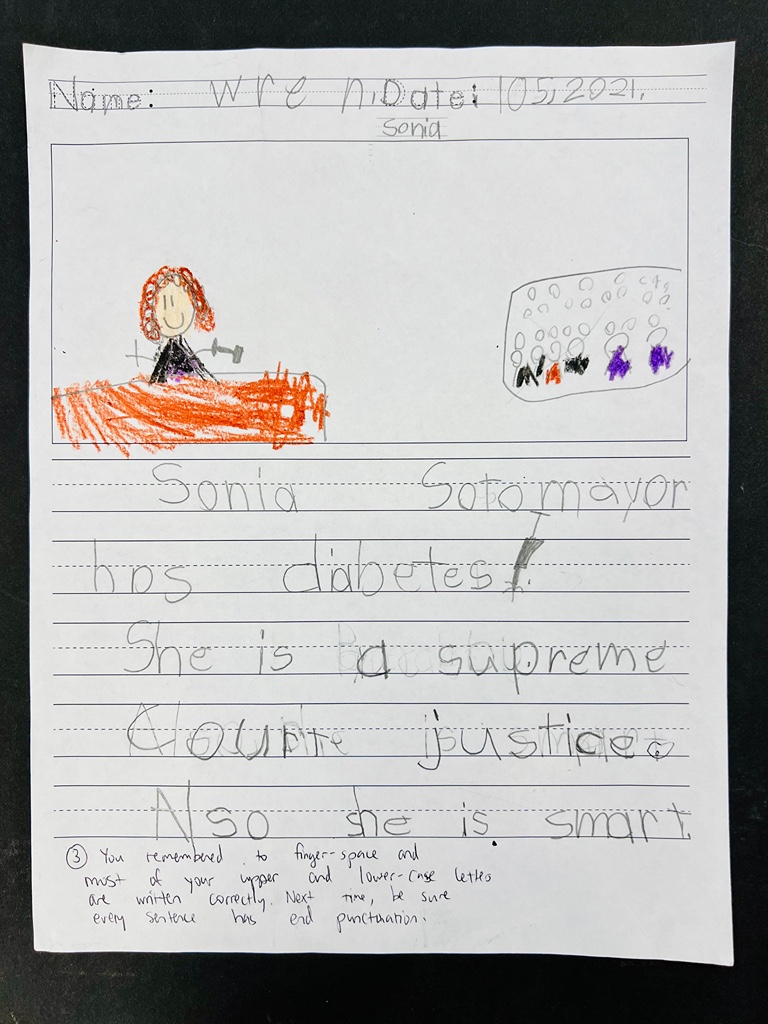 Name: Wre n, Date: 105,2021.
Sonia
Sonia Sotomayor
has diabetes!
She is a supreme
Courte justice.
Also she is smart
③ You remembered to finger-space and
most of your upper and lower-case letters
are written correctly. Next time, be sure
every sentence has end punctuation.